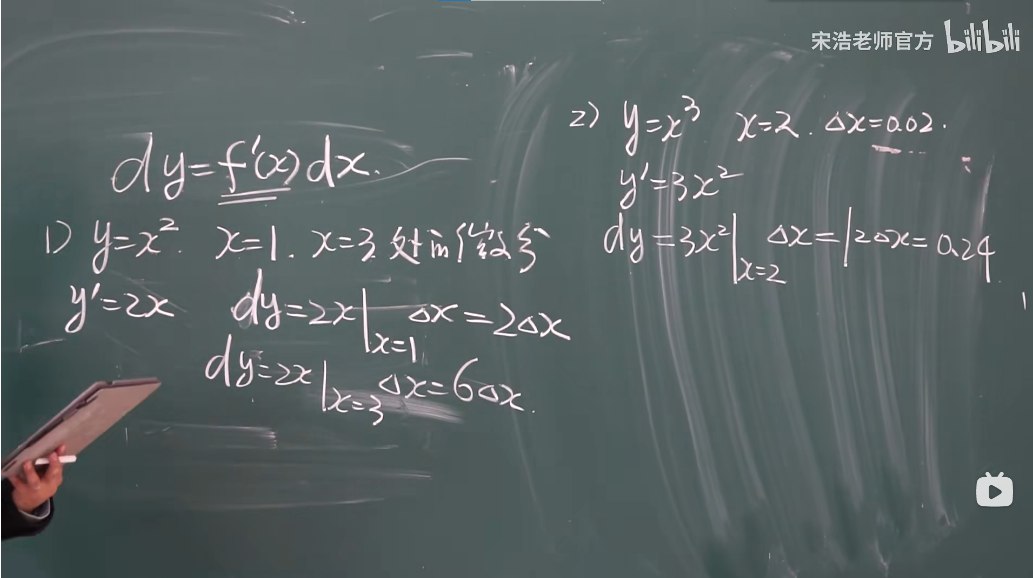 宋浩老师官方 bilibili
dy=f'(x)dx.
1) y=x². x=1. x=3处的微分
y'=2x dy=2x|ₓ₌₁ Δx=2Δx
dy=2x|ₓ₌₃ Δx=6Δx.
2) y=x³ x=2. Δx=0.02.
y'=3x²
dy=3x²|ₓ₌₂ Δx=12Δx=0.24